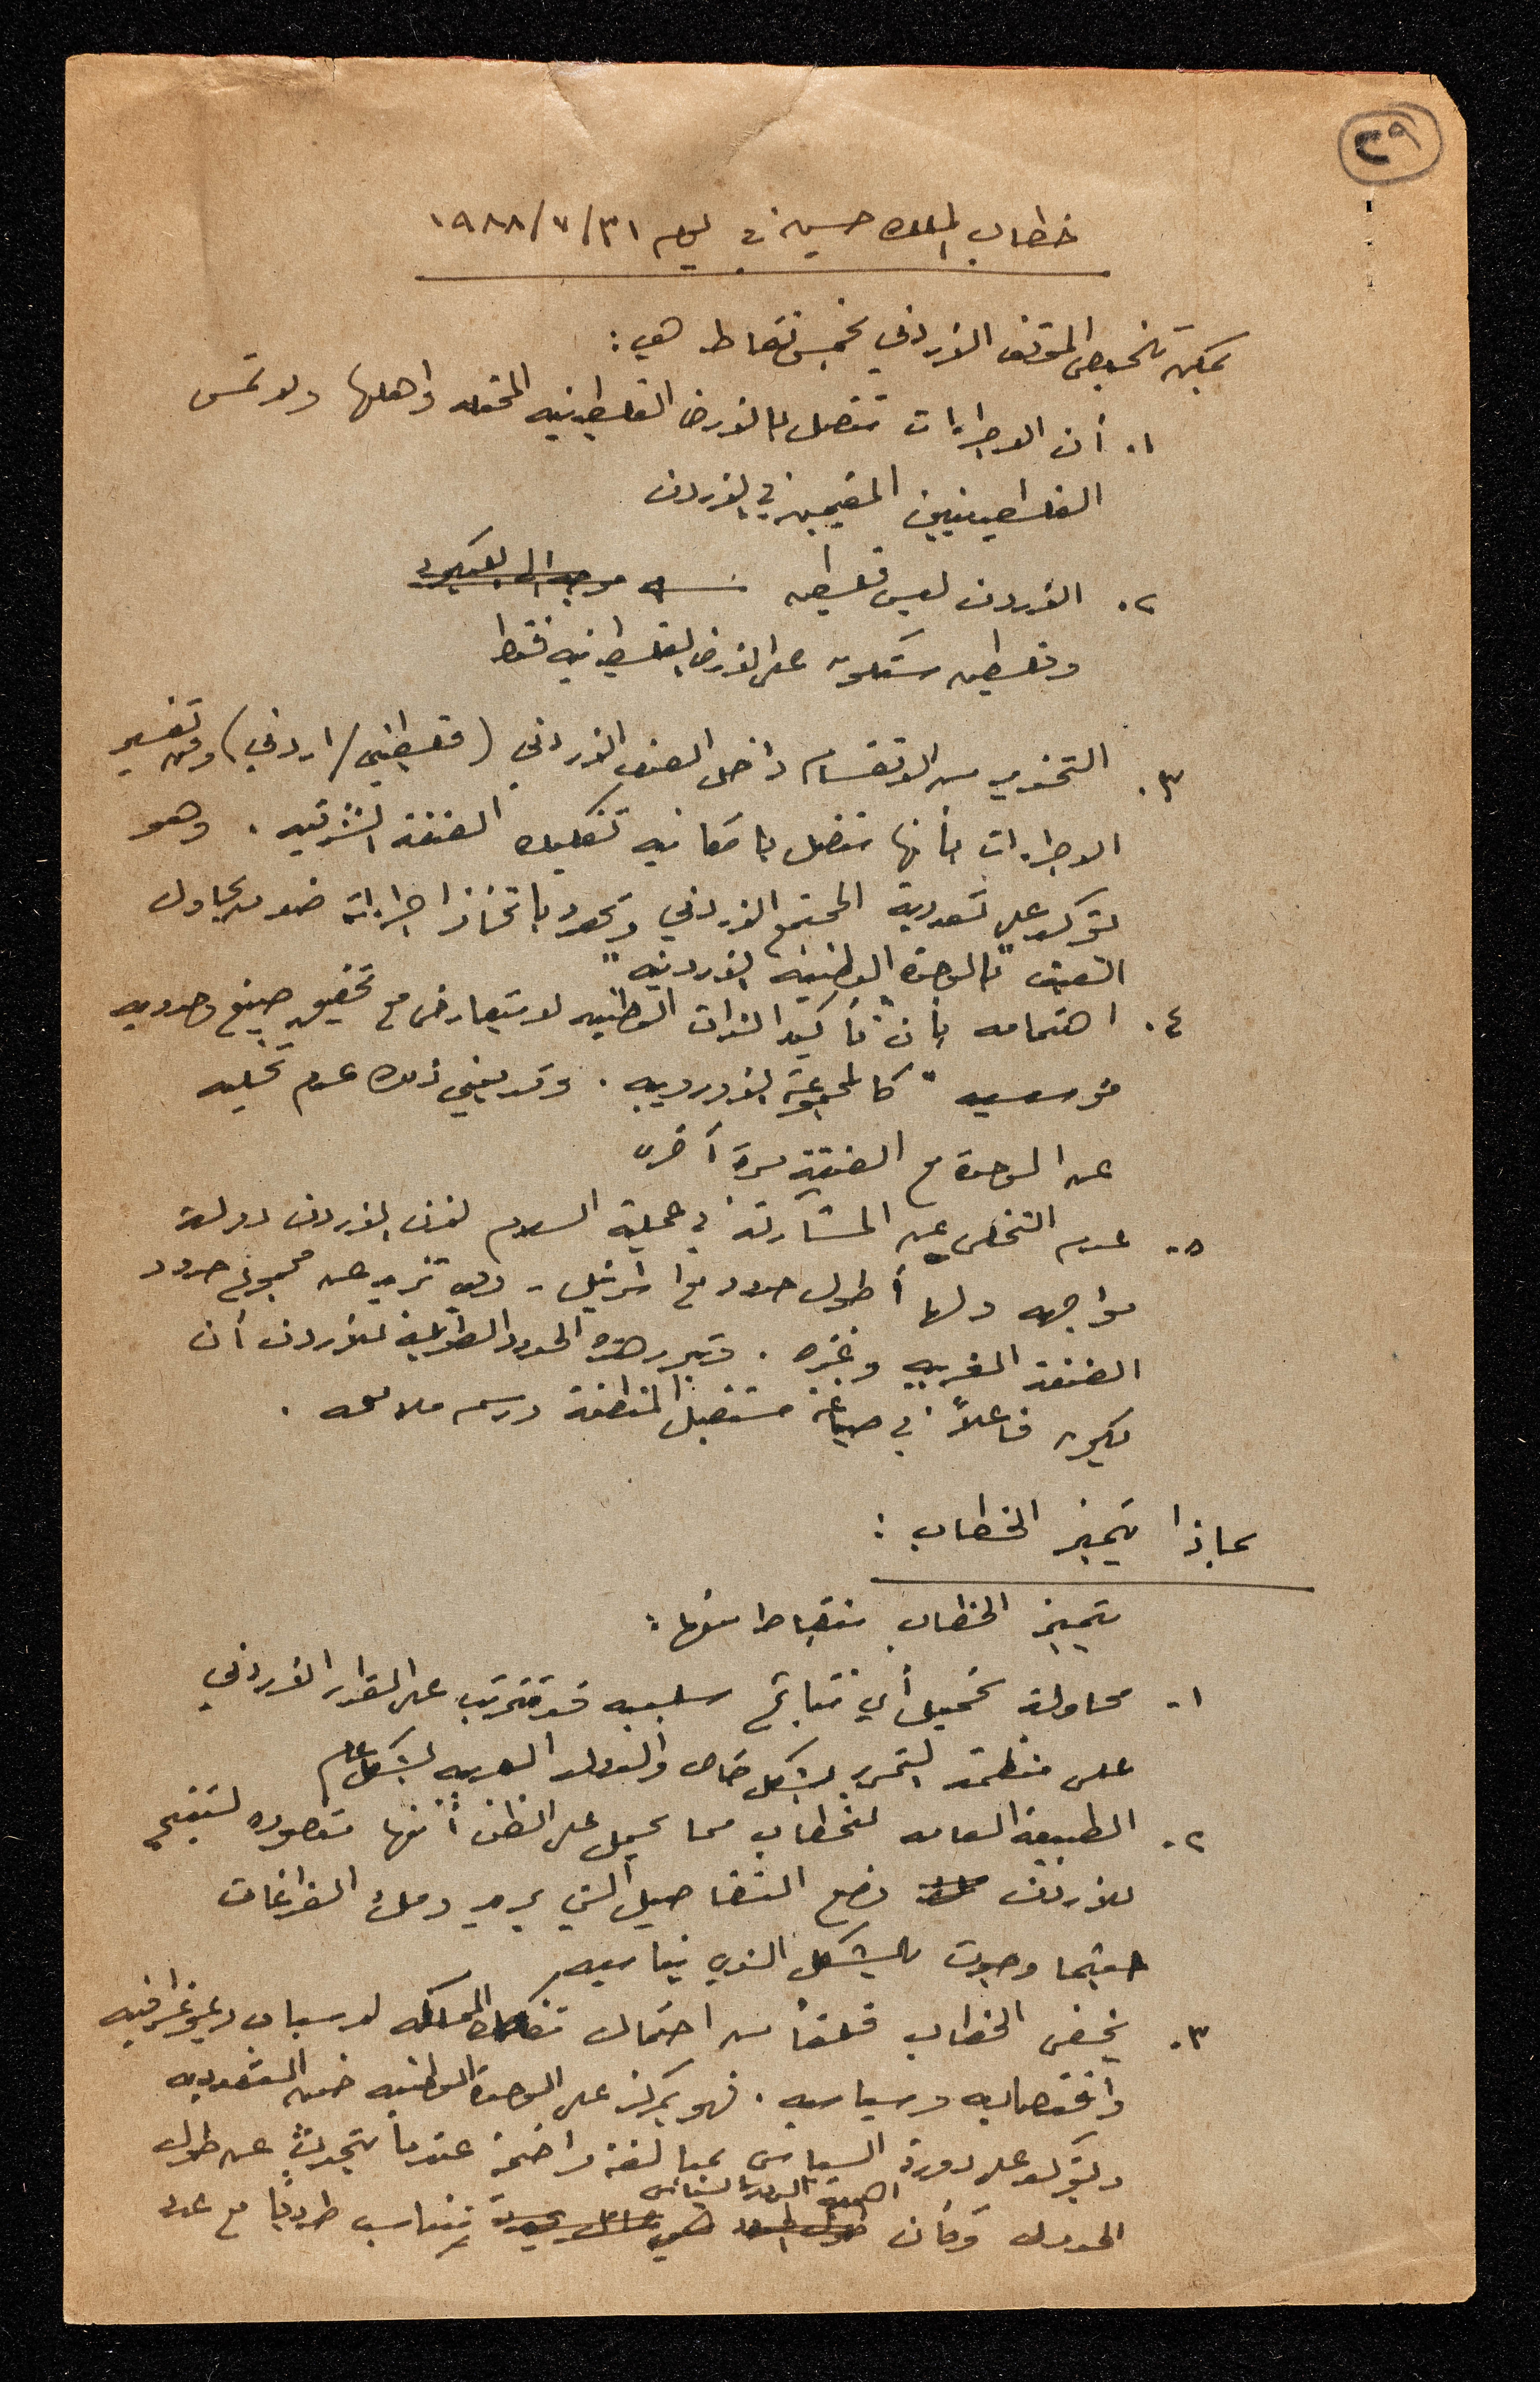 ٢٩
خطاب الملك حسين في يوم ٣١/٧/١٩٨٨
يمكن تلخيص الموقف الأردني بخمس نقاط هي:
١. أن الاجراءات تتصل بالأرض الفلسطينيه المحتله واهلها ولا تمس
الفلسطينيين المقيمين في الأردن
٢. الأردن ليس فلسطين
وفلسطين ستكون على الأرض الفلسطينيه فقط
٣. التخوف من الانقسام داخل الصف الأردني (فلسطيني/اردني) ومن تفسير
الاجراءات بأنها تتصل بامكانيه تفكيك الضفة الشرقيه. وهو
يؤكد على تعددية المجتمع الأردني وتعهد باتخاذ اجراءات ضد من يحاول
العبث "بالوحدة الوطنية الأردنيه"
٤. اهتمامه بأن "تأكيد الذات الوطنيه لا يتعارض مع تحقيق صيغ وحدويه
مؤسسيه" كالمجموعة الأوروبيه. وقد يعني ذلك عدم تخليه
عن الوحدة مع الضفة مرة أخرى
٥. عدم التخلي عن المشاركة في عملية السلام لأن الأردن دولة
مواجهه ولها أطول حدود مع اسرائيل - وهي تزيد عن مجموع حدود
الضفة الغربيه وغزه. وتبرر هذه الحدود الطويلة للأردن أن
يكون فاعلاً في صياغة مستقبل المنطقة ورسم ملامحه.
بماذا يتميز الخطاب:
يتميز الخطاب بنقاط منها:
١- محاولة تحميل أي نتائج سلبيه قد تترتب على القرار الأردني
على منظمة التحرير بشكل خاص والدول العربيه بشكل عام
٢. الطبيعة العامه للخطاب مما يحمل على الظن أنها مقصوده ليتيح
للأردن وضع التفاصيل التي يريد وملء الفراغات
حيثما وجدت بالشكل الذي يناسبه
٣. يخفي الخطاب قلقاً من احتمال تفكك المملكه لاسباب ديموغرافيه
واقتصاديه وسياسيه. فهو يركز على الوحدة الوطنيه ضمن التعدديه
ويؤكد على دوره السياسي بمبالغة واضحة عندما يتحدث عن طول
الحدود وكأن اهمية الدور السياسي تتناسب طردياً مع عدد